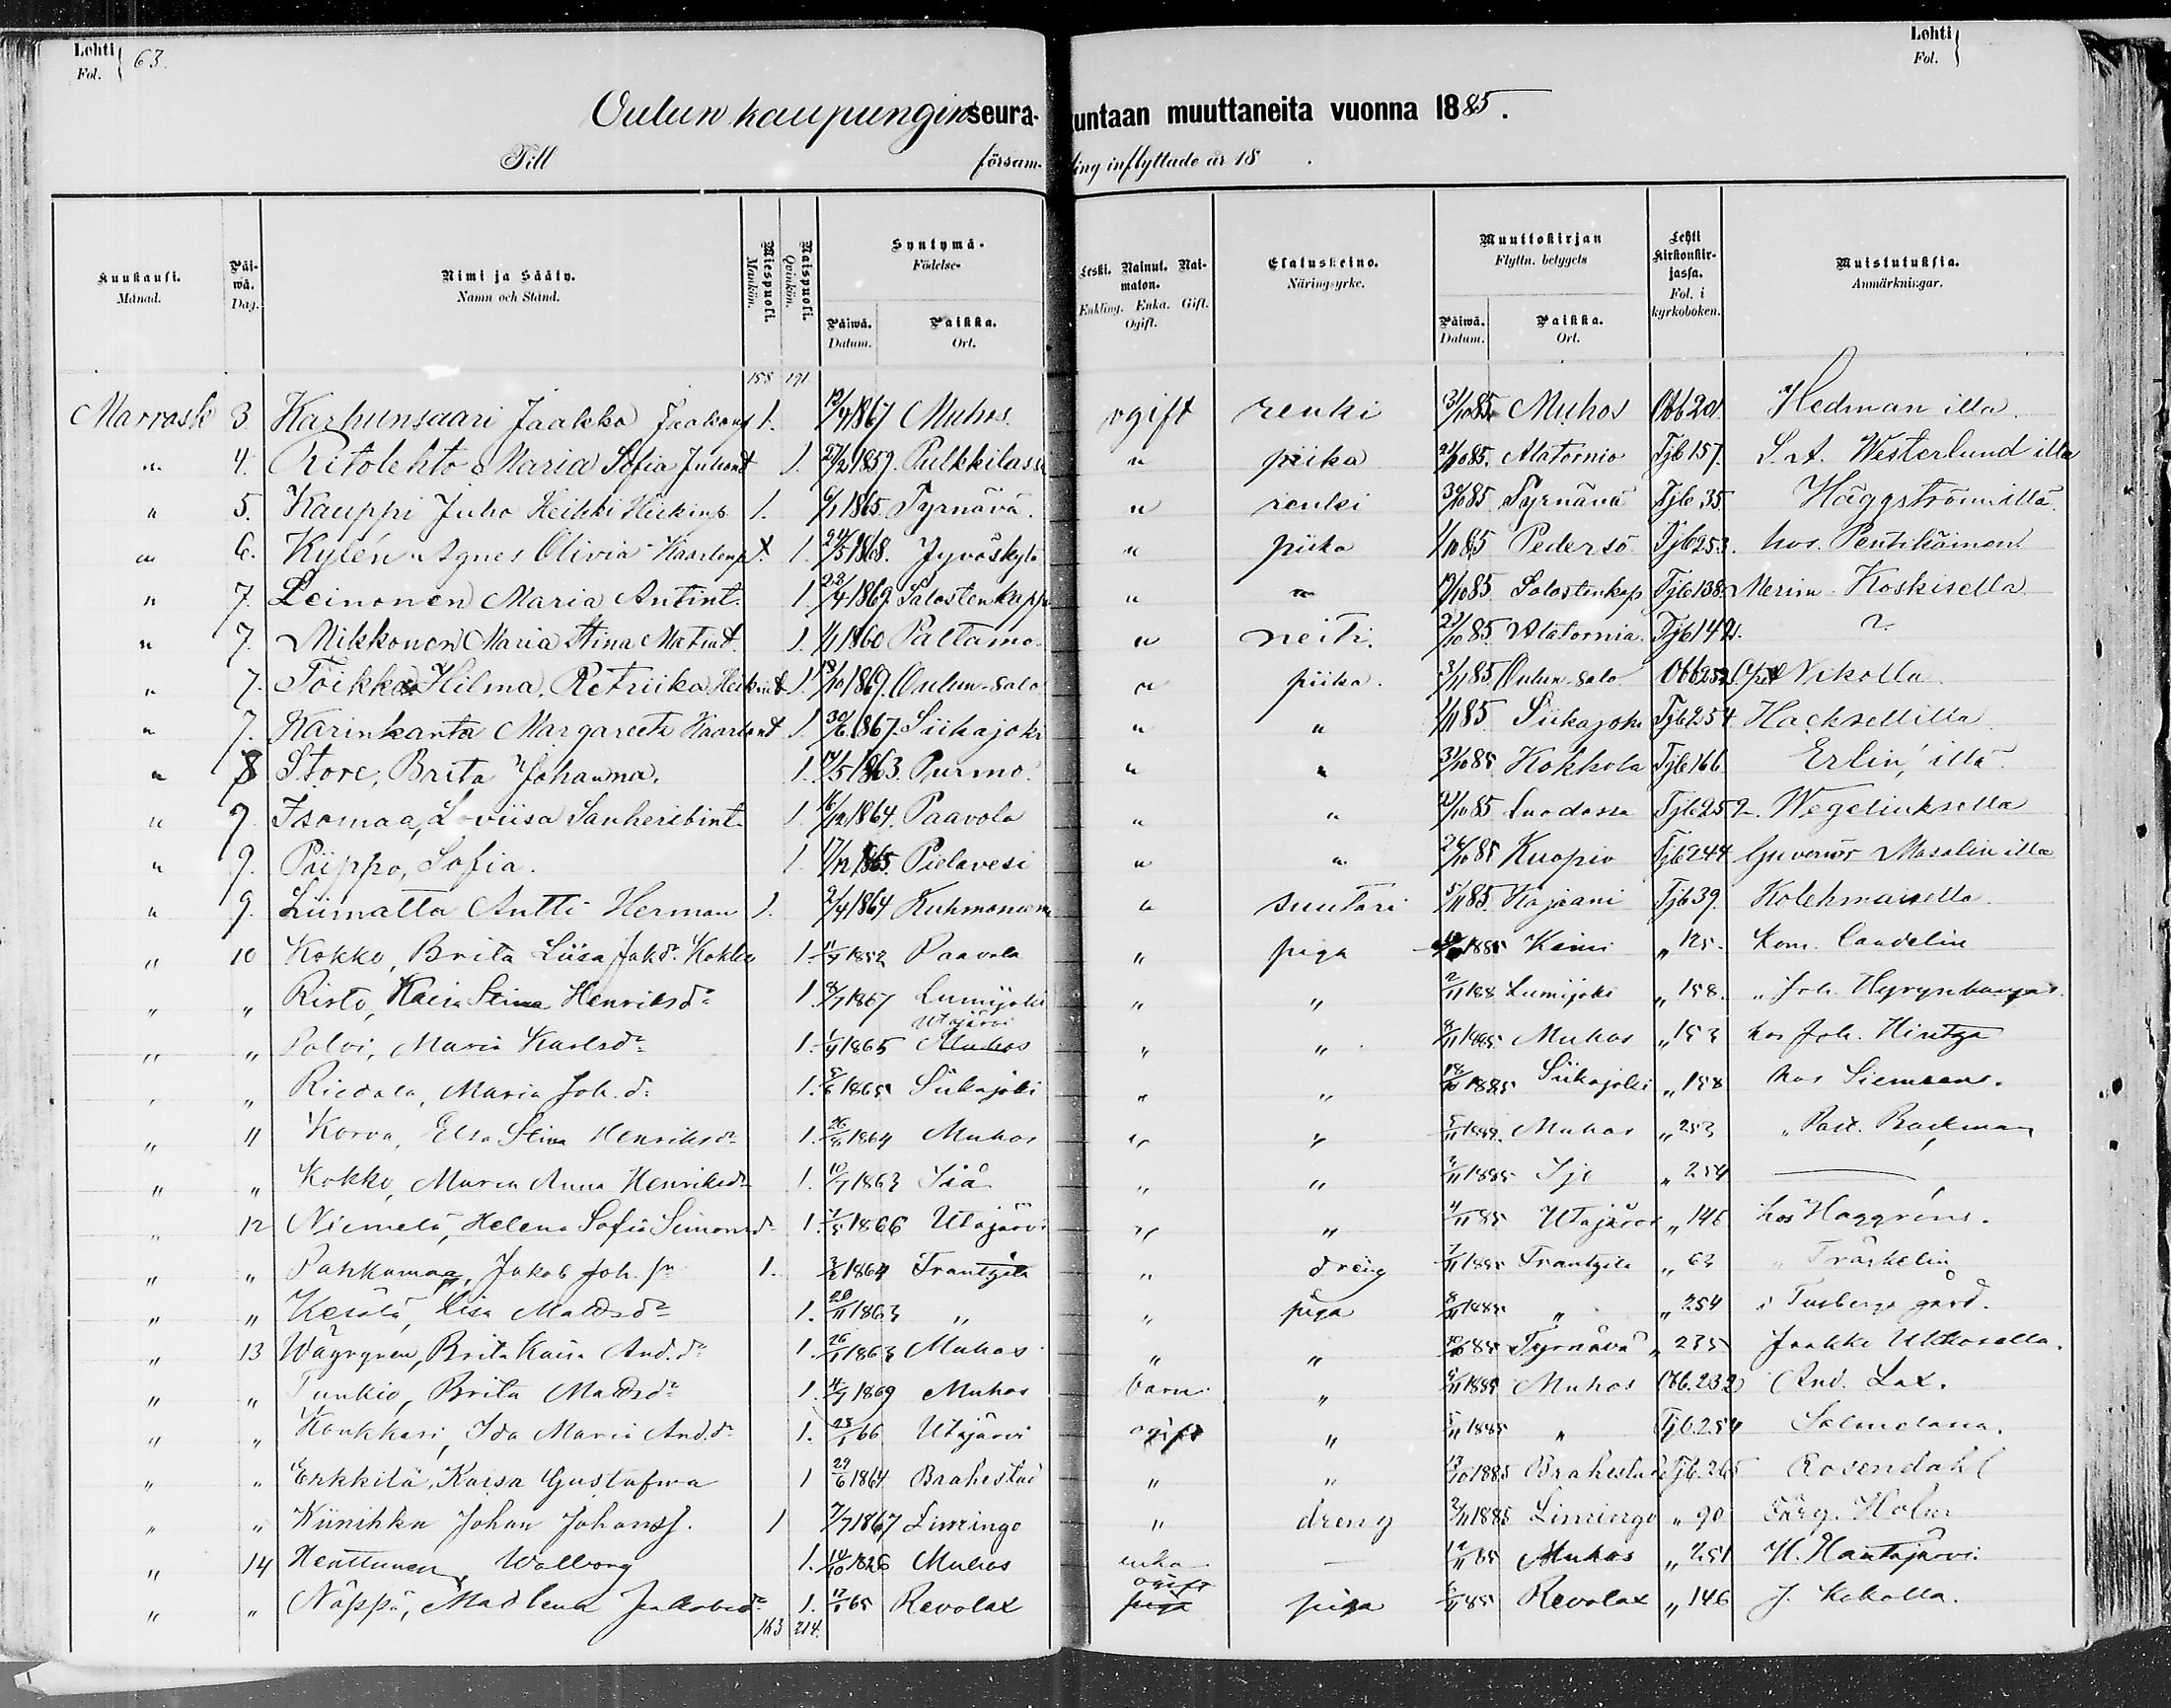 Lehti Fol. 63.
Lehti Fol.
Oulun kaupungin seura-kuntaan muuttaneita vuonna 1885.
Till försam-ling inflyttade år 18 .
Kuukausi. Månad. Päi-wä. Dag. Nimi ja Sääty. Namn och Stånd. Miespuoli. Mankön. Naispuoli. Qvinkön. Syntymä- Födelse- Päiwä. Datum. Paikka. Ort. Leski. Nainut. Nai-maton. Enkling. Enka. Gift. Ogift. Elatuskeino. Näringsyrke. Muuttokirjan Flyttn. betygets Päiwä. Datum. Paikka. Ort. Lehti Kirkonkir-jassa. Fol. i kyrkoboken. Muistutuksia. Anmärkningar.
158 191
Marrask 3. Karhunsaari Jaakko Jaakonp 1. 12/4 1867 Muhos. ogift renki 31/10 85. Muhos Obb 201. Hedman illa.
" 4. Ritolehto Maria Sofia Juhont 1. 27/2 1859. Pulkkilassa " piika 21/10 85. Alatornio Tjb 157. S. A. Westerlund illa
" 5. Kauppi Juho Heikki Heikinp 1. 6/1 1865 Tyrnävä. " renki 30/10 85 Tyrnävä Tjb 35 Häggströmillä.
" 6. Kylén Agnes Olivia Kaarlenp 1. 24/5 1868. Jyväskylä " piika 1/10 85 Pedersö Tjb 253. hos. Pentikäinen
" 7. Leinonen Maria Antint. 1. 23/4 1869. Salosten kapp " " 19/10 85 Salostenkap Tjb 138. Merim. Koskisella
" 7. Mikkonen Maria Stina Matint. 1. 1/1 1860 Paltamo. " neiti. 21/10 85 Alatornia. Tjb 149. ?
" 7. Toikka Hilma Retriika Heikint 1. 13/10 1869. Oulun-salo " piika. 3/11 85. Oulun-salo Obb 252 Nikolla
" 7. Karinkanta Margareeta Kaarlont 1. 30/6 1867. Siikajoki " " 1/11 85 Siikajoki Tjb 254 Hacksellilla
" 8 Store, Brita Johanna. 1. 14/5 1863. Purmo. " " 31/10 85 Kokkola Tjb 166. Erlin'illä.
" 9. Isomaa, Loviisa Sanheribint. 1. 16/12 1864. Paavola " " 21/10 85 Tjb 252. Wegeliuksella
" 9. Piippo, Sofia. 1. 17/12 1865. Pielavesi " " 26/10 85 Kuopio Tjb 244 Guvernör Masalin illa
" 9. Liimatta Antti Herman 1. 2/4 1864 Kuhmoniemi " suutari 5/11 85. Kajaani Tjb 39. Kolehmaisella.
" 10 Kokko, Brita Liisa Jakdr. Kokko 1. 11/4 1852 Paavola " piga 1885 Kemi " 125. Kom. Candelin
" " Risto, Kaisa Stina Henriksdr 1. 8/7 1867 Lumijoki " " 2/11 188 Lumijoki " 158. " Joh. Hyrynkangas.
" " Polvi, Maria Karlsdr 1. 1/4 1865 Utajärvi Muhos " " 8/11 1885. Muhos " 153 hos Joh. Hintsa
" " Riedala, Maria Joh. dr 1. 5/6 1865 Siikajoki " " 18/10 1885 Siikajoki " 158 hos Siemsens.
" 11 Korva, Elsa Stina Henriksdr 1. 26/11 1864 Muhos " " 5/11 1885. Muhos " 253 " Past. Backman
" " Kokko, Maria Anna Henriksdr 1. 10/7 1863 Ijå " " 7/11 1885 Ijo " 254 —
" 12 Niemelä, Helena Sofia Simonsdr 1. 7/5 1866 Utajärvi " " 4/11 85 Utajärvi " 146 hos Haggréns.
" " Pahkamaa, Jakob Joh. sn 1. 3/2 1864 Frantzila " dräng 7/11 1885 Frantzila " 63 " Träskelin
" " Kesälä, Lisa Mattsdr 1. 20/11 1863 " " piga 8/11 1885 " " 254 i Tusbergs gård.
" 13 Wäyrynen, Brita Kaisa And. dr 1. 26/1 1863 Muhos " " 10/10 85 Tyrnävä " 235 Jaakko Ukkosella.
" " Tunkio, Brita Mattsdr 1. 4/3 1869 Muhos barn " 9/11 1885 Muhos Obb. 232 And. Lax.
" " Konkkari, Ida Maria And. dr 1. 28/1 66 Utajärvi ogift " 5/11 1885 " Tjb. 254
" " Erkkilä, Kaisa Gustafva 1 29/6 1864 Brahestad " " 13/10 1885 Brahestad Tjb. 265 Rosendahl
" " Kiinihka Johan Johanss. 1 7/7 1867 Limingo " dreng 2/11 1885 Limingo " 90 Färg. Holm
" 14 Henttunen, Walborg 1. 14/10 1826 Muhos enka — 12/11 85 Muhos " 251 H. Hautajärvi.
" " Näppä, Madlena Jakobsdr 1. 12/1 65 Revolax ogift piga piga 5/11 85 Revolax " 146 J. Kokolla.
163 214.